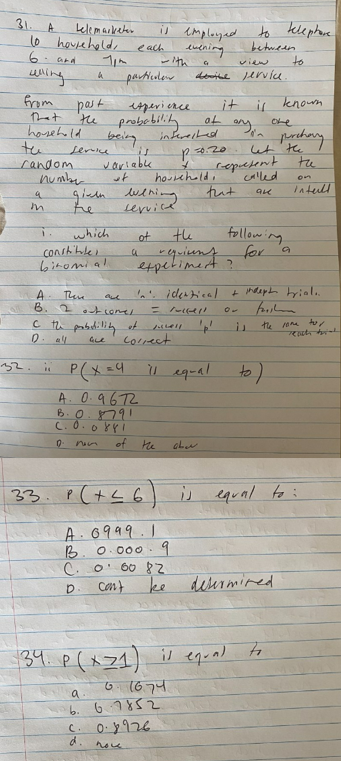 31. A telemarketer is employed to telephone
10 households each evening between
6 and 7pm with a view to
selling a particular service.
From past experience it is known
that the probability of any one
household being interested in purchasing
the service is p=0.20. Let the
random variable x represent the
number of households called on
a given evening that are
in the service
i. which of the following
constitutes a requirement for a
binomial experiment?
A. There are 'n' identical + indepth trials.
B. 2 outcomes = success or
C the probability of success 'p' is the same for
D. all are correct
32. ii P(x=4 is equal to)
A. 0.9672
B. 0.8791
C. 0.0881
D. none of the above
33. P(x ≤ 6) is equal to:
A. 0999.1
B. 0.000.9
C. 0.0082
D. cant be determined
34. P(x ≥ 1) is equal to
a. 0.1074
b. 0.7852
c. 0.8926
d. none